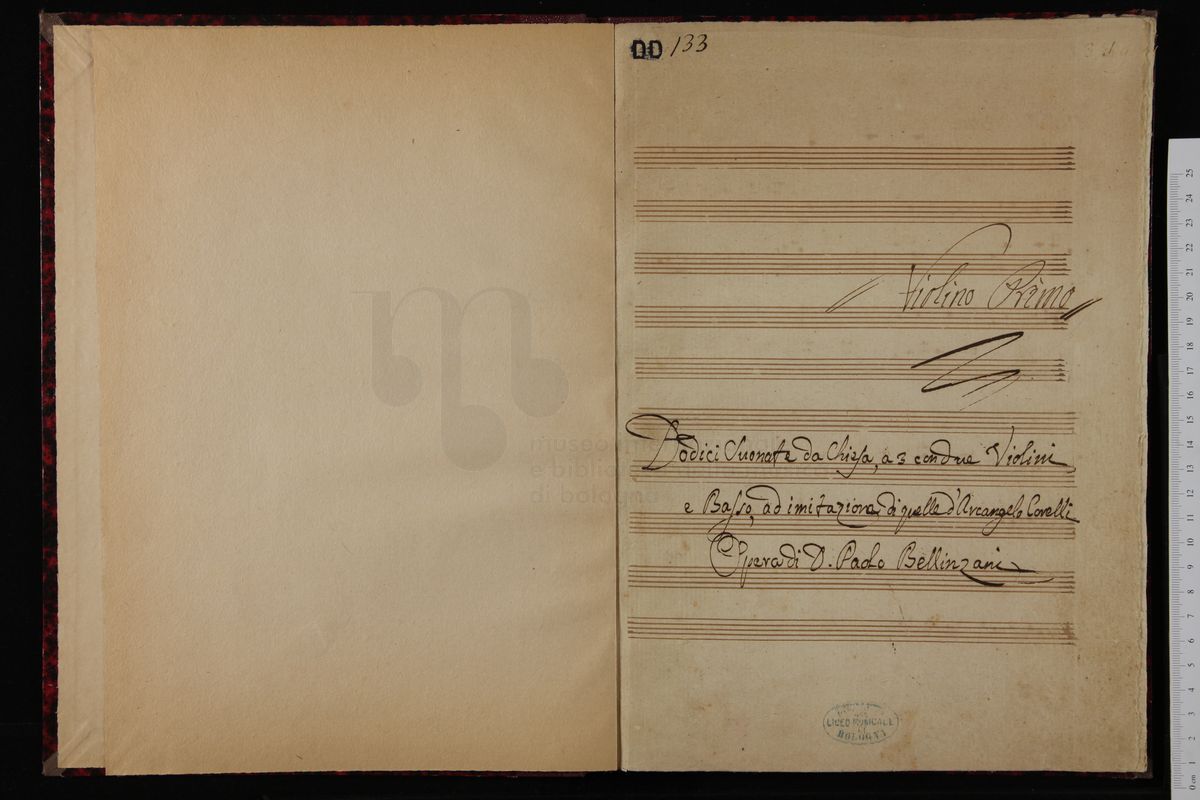 DD 133
Violino Primo
Dodici Suonate da Chiesa, a 3 con due Violini
e Basso, ad imitazione di quelle d'Arcangelo Corelli
Opera di D. Paolo Bellinzani
LICEO MUSICALE
BOLOGNA
museo
e biblio
di bologna
25
24
23
22
21
20
19
18
17
16
15
14
13
12
11
10
9
8
7
6
5
4
3
2
1
0 cm